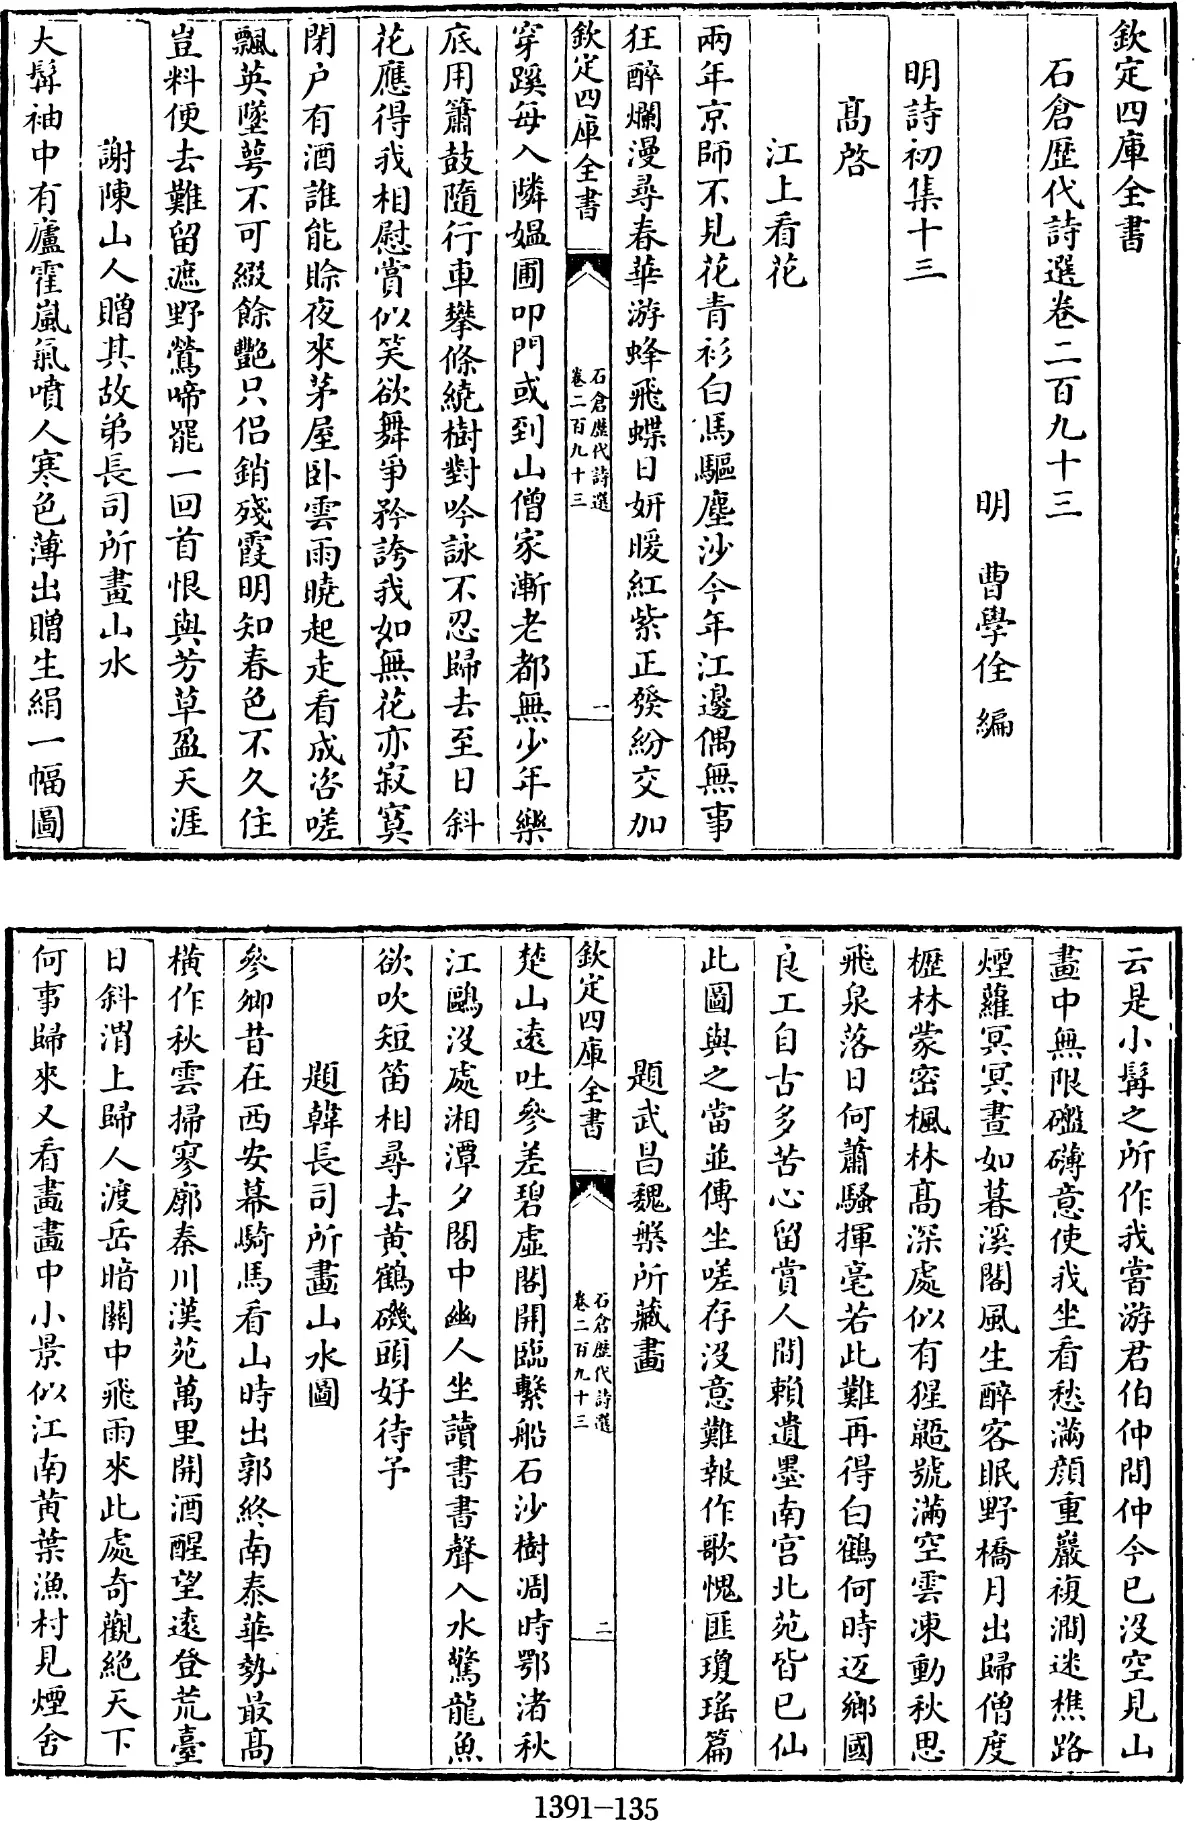 欽定四庫全書
石倉歷代詩選卷二百九十三
明　曹學佺　編
明詩初集十三
高啓
江上看花
兩年京師不見花青衫白馬驅塵沙今年江邊偶無事
狂醉爛漫尋春華游蜂飛蝶日妍暖紅紫正發紛交加
欽定四庫全書
石倉歷代詩選
卷二百九十三
一
穿蹊每入隣媪圃叩門或到山僧家漸老都無少年樂
底用簫鼓隨行車攀條繞樹對吟詠不忍歸去至日斜
花應得我相慰賞似笑欲舞爭矜誇我如無花亦寂寞
閉户有酒誰能賒夜來茅屋卧雲雨曉起走看成咨嗟
飄英墜萼不可綴餘艷只侣銷殘霞明知春色不久住
豈料便去難留遮野鶯啼罷一回首恨與芳草盈天涯
謝陳山人贈其故弟長司所畫山水
大髯袖中有廬霍嵐氣噴人寒色薄出贈生絹一幅圖
云是小髯之所作我嘗游君伯仲間仲今已沒空見山
畫中無限礲礴意使我坐看愁滿顔重巖複澗迷樵路
煙蘿冥冥晝如暮溪閣風生醉客眠野橋月出歸僧度
櫪林蒙密楓林高深處似有猩鼯號滿空雲凍動秋思
飛泉落日何蕭騷揮毫若此難再得白鶴何時返鄉國
良工自古多苦心留賞人間賴遺墨南宫北苑皆已仙
此圖與之當並傳坐嗟存沒意難報作歌愧匪瓊瑶篇
題武昌魏槃所藏畫
欽定四庫全書
石倉歷代詩選
卷二百九十三
二
楚山遠吐參差碧虛閣開臨繫船石沙樹凋時鄂渚秋
江鷗沒處湘潭夕閣中幽人坐讀書書聲入水驚龍魚
欲吹短笛相尋去黄鶴磯頭好待予
題韓長司所畫山水圖
參卿昔在西安幕騎馬看山時出郭終南泰華勢最高
橫作秋雲掃寥廓秦川漢苑萬里開酒醒望遠登荒臺
日斜渭上歸人渡岳暗關中飛雨來此處奇觀絶天下
何事歸來又看畫畫中小景似江南黄葉漁村見煙舍
1391-135